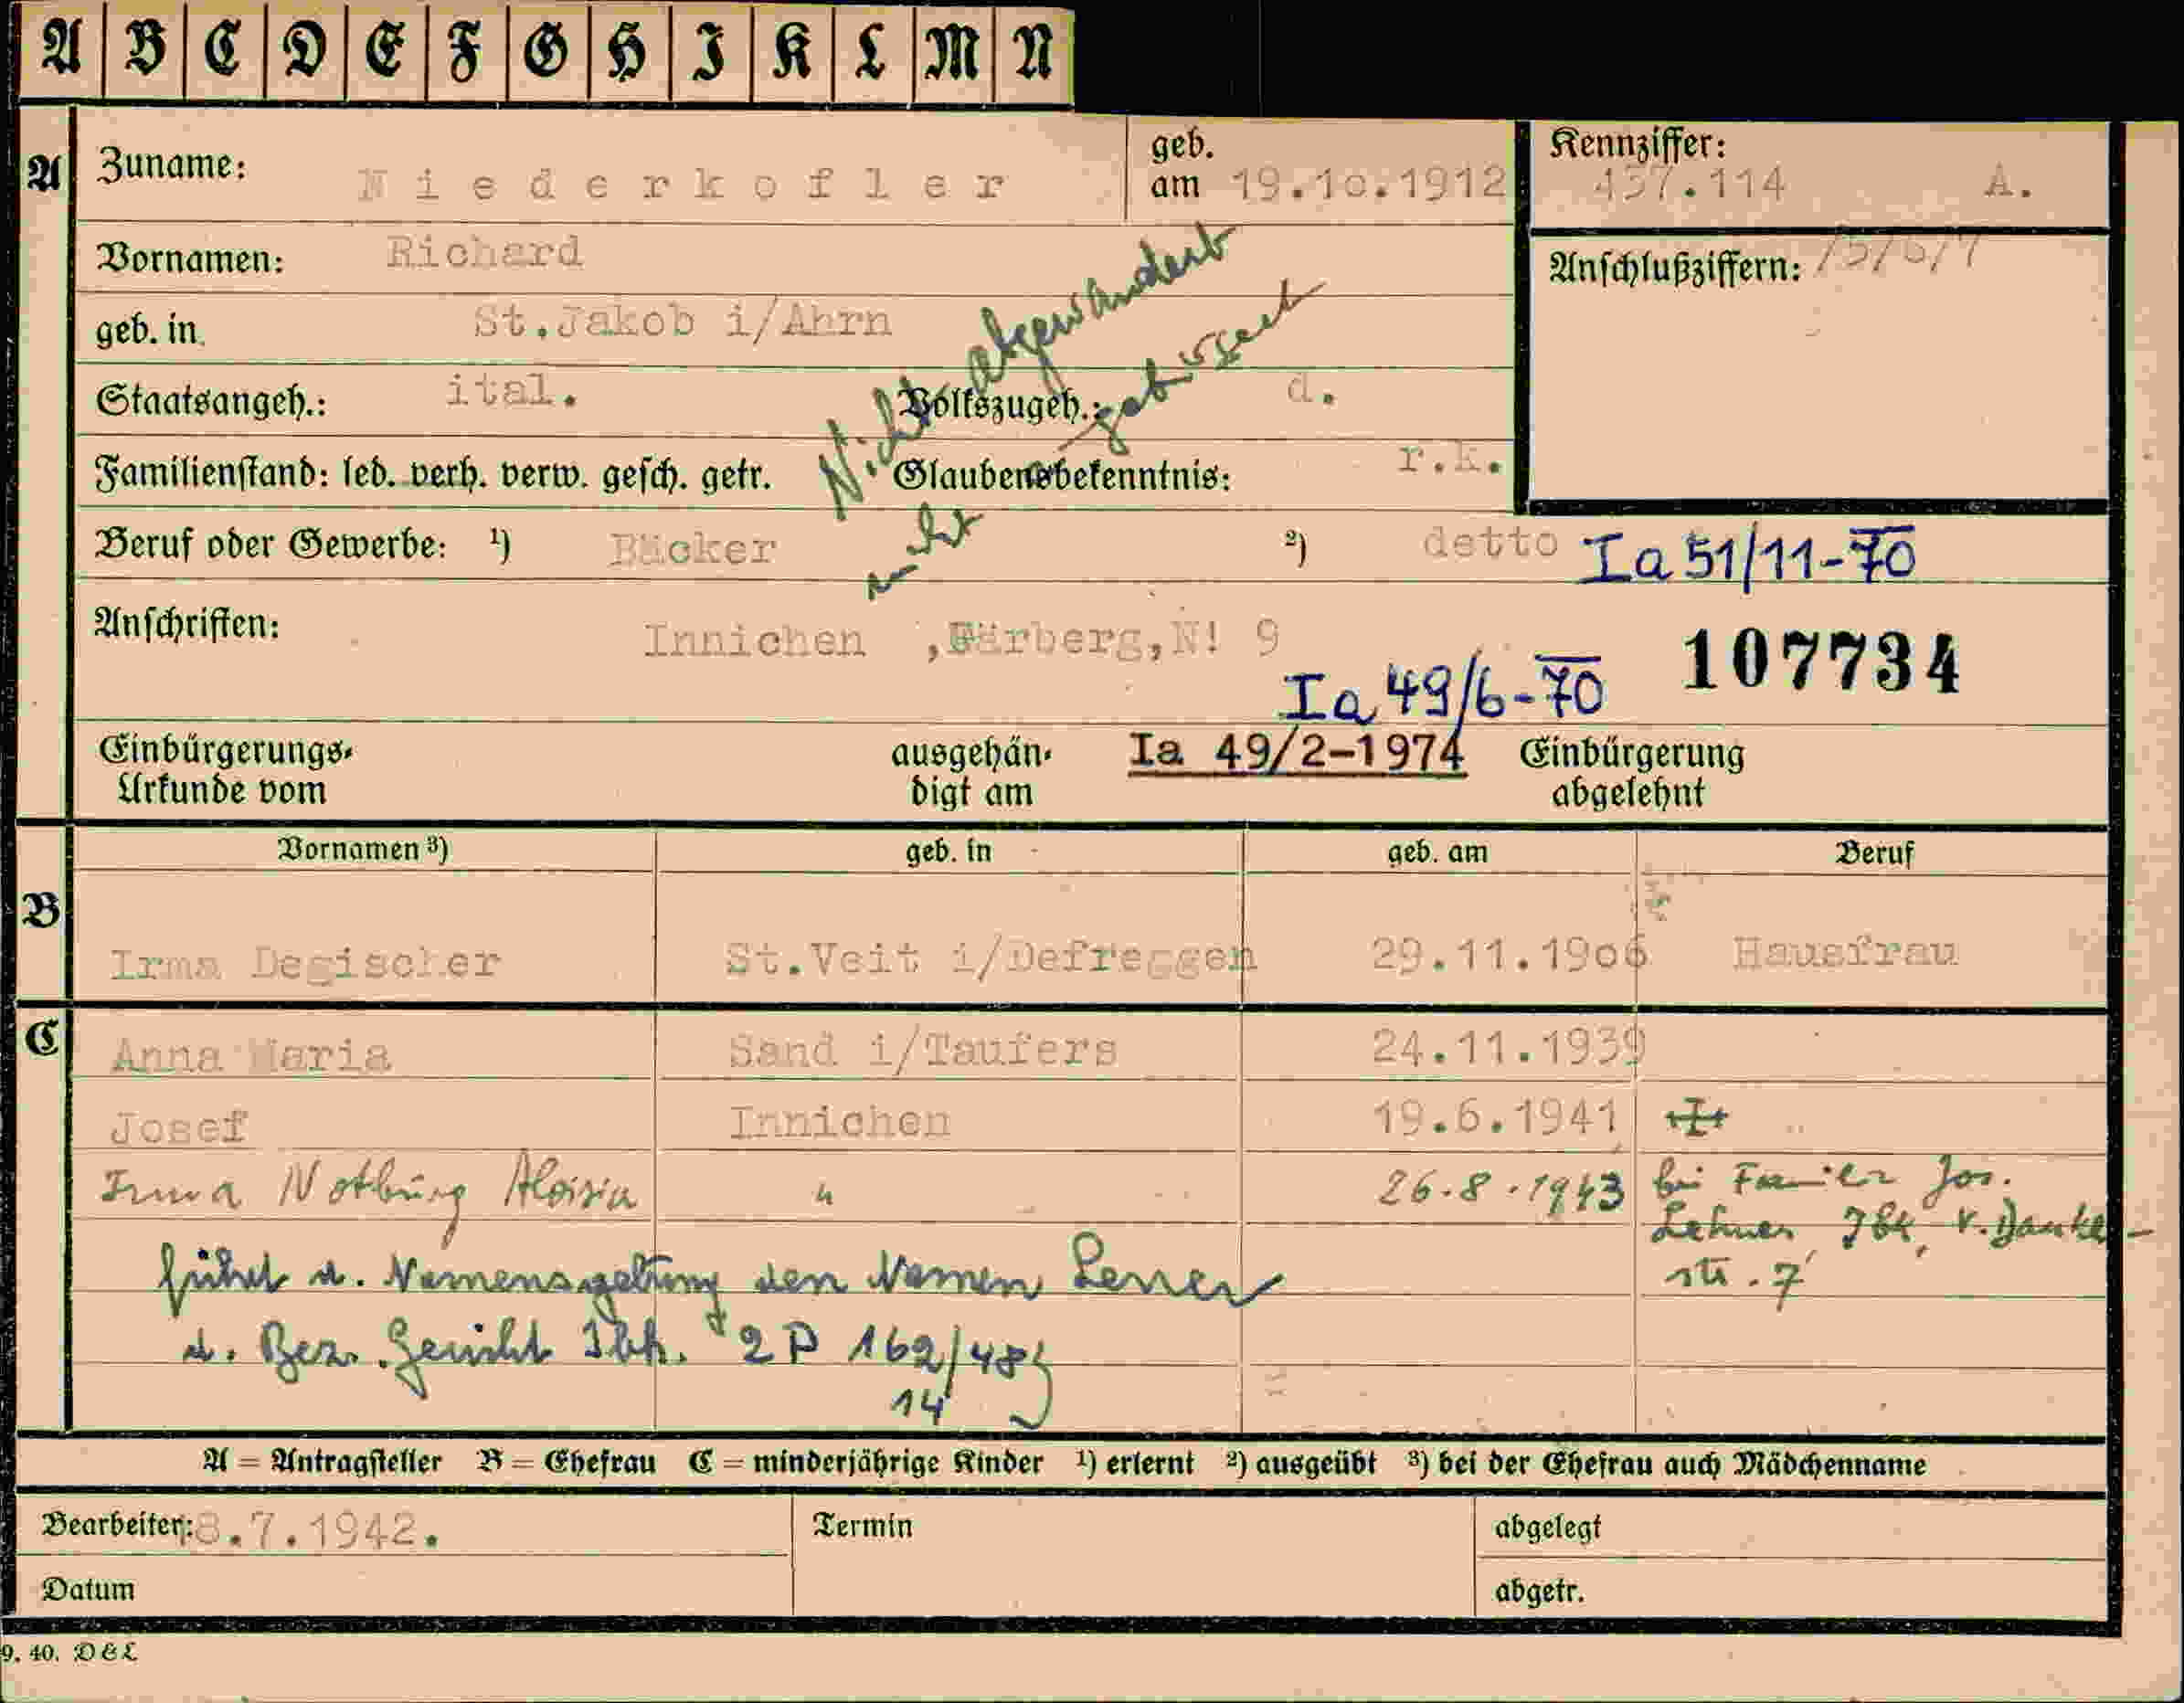 A B C D E F G H I K L M N
A Zuname: Niederkofler geb. am 19.10.1912 Kennziffer: 437.114 A.
Vornamen: Richard Anschlußziffern: /5/6/7
geb. in St.Jakob i/Ahrn
Staatsangeh.: ital. Volkszugeh.: d.
Nicht abgewandert
Familienstand: led. verh. verw. gesch. getr. Glaubensbekenntnis: r.k.
Beruf oder Gewerbe: 1) Bäcker 2) detto Ia 51/11-70
Anschriften: Innichen ,Färberg,N! 9
Ia 49/6-70 107734
Einbürgerungs-Urkunde vom ausgehän-digt am Ia 49/2-1974 Einbürgerung abgelehnt
Vornamen 3) geb. in geb. am Beruf
B Irma Degischer St.Veit i/Defreggen 29.11.1906 Hausfrau
C Anna Maria Sand i/Taufers 24.11.1939
Josef Innichen 19.6.1941
Irma Notburg Aloisia " 26.8.1943 bei Familie Jos.
führt d. Namensgebung den Namen Lerner
d. Bez. Gericht Ibk. 2 P 162/48
14
str. 7
A = Antragsteller B = Ehefrau C = minderjährige Kinder 1) erlernt 2) ausgeübt 3) bei der Ehefrau auch Mädchenname
Bearbeiter: 8.7.1942. Termin abgelegt
Datum abgetr.
9. 40. D & L